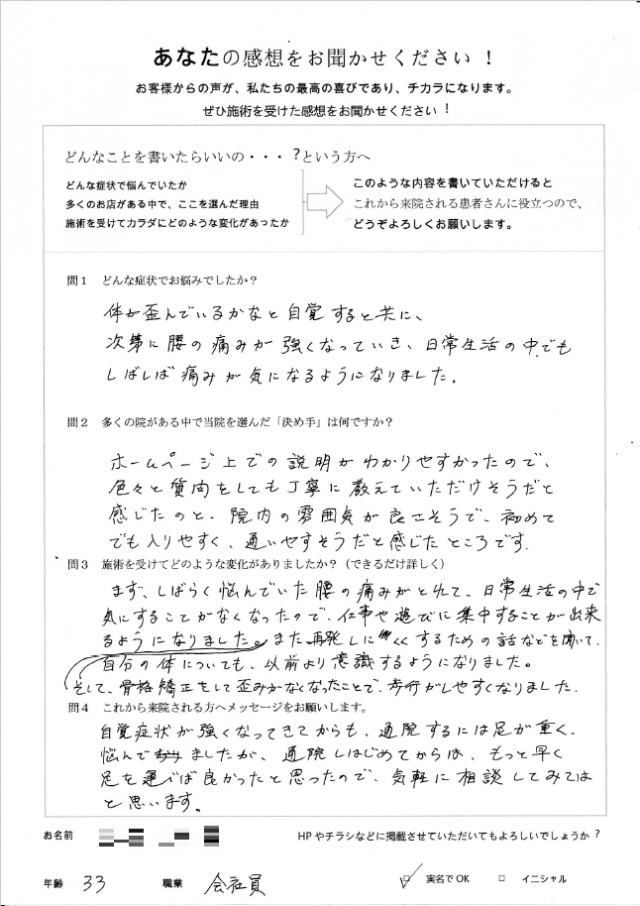 あなたの感想をお聞かせください！
お客様からの声が、私たちの最高の喜びであり、チカラになります。
ぜひ施術を受けた感想をお聞かせください！
どんなことを書いたらいいの・・・？という方へ
どんな症状で悩んでいたか
多くのお店がある中で、ここを選んだ理由
施術を受けてカラダにどのような変化があったか
このような内容を書いていただけると
これから来院される患者さんに役立つので、
どうぞよろしくお願いします。
問１ どんな症状でお悩みでしたか？
体が歪んでいるかなと自覚すると共に、
次第に腰の痛みが強くなっていき、日常生活の中でも
しばしば痛みが気になるようになりました。
問２ 多くの院がある中で当院を選んだ「決め手」は何ですか？
ホームページ上での説明がわかりやすかったので、
色々と質問をしても丁寧に教えていただけそうだと
感じたのと、院内の雰囲気が良さそうで、初めて
でも入りやすく、通いやすそうだと感じたところです。
問３ 施術を受けてどのような変化がありましたか？（できるだけ詳しく）
まず、しばらく悩んでいた腰の痛みがとれて、日常生活の中で
気にすることがなくなったので、仕事や遊びに集中することが出来
るようになりました。また再発しにくくするための話などを聞いて、
自分の体についても、以前より意識するようになりました。
そして、骨格矯正をして歪みがなくなったことで、歩行がしやすくなりました。
問４ これから来院される方へメッセージをお願いします。
自覚症状が強くなってきてからも、通院するには足が重く、
悩んでましたが、通院しはじめてからは、もっと早く
足を運べば良かったと思ったので、気軽に相談してみては
と思います。
お名前
HPやチラシなどに掲載させていただいてもよろしいでしょうか？
年齢 33 職業 会社員 ☑ 実名でOK □ イニシャル